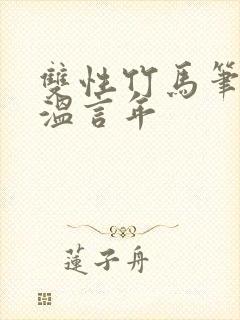 雙性竹馬筆
溫言年
蓮子舟